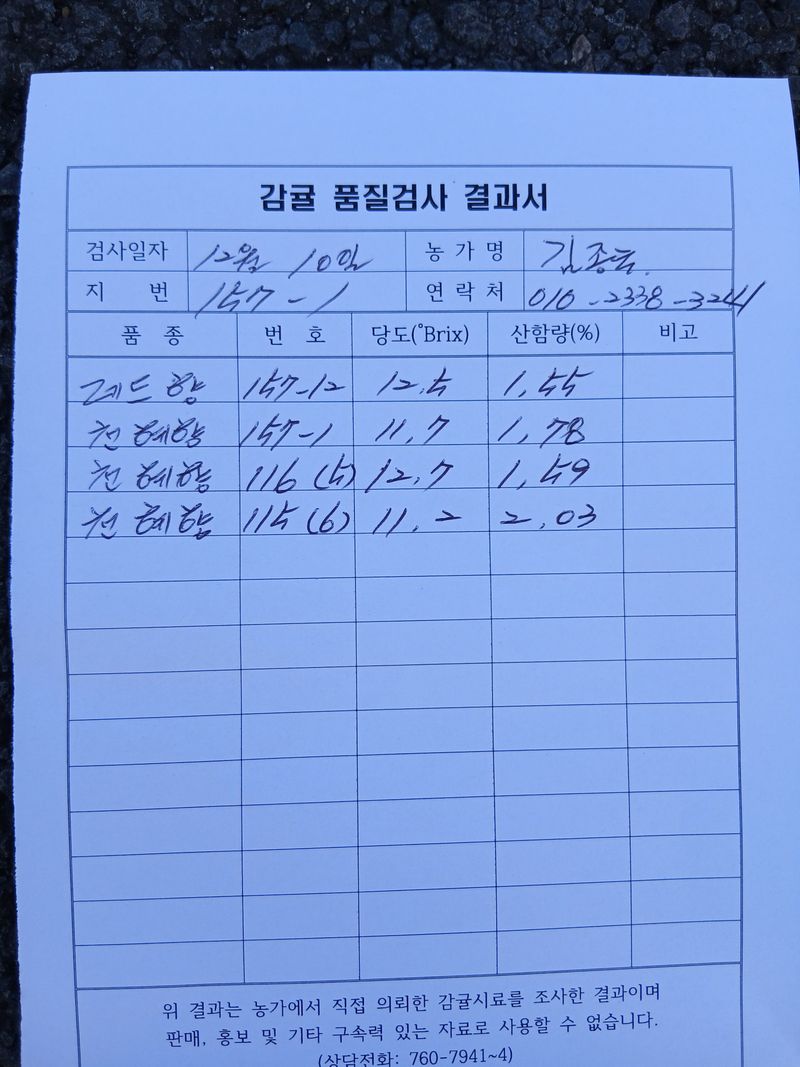 감귤 품질검사 결과서
검사일자 12월 10일 농가명 김종
지 번 157-1 연락처 010-2338-3241
품 종 번 호 당도(°Brix) 산함량(%) 비고
레드향 157-12 12.5 1.55
천혜향 157-1 11.7 1.78
천혜향 116 (5) 12.7 1.59
천혜향 115 (6) 11.2 2.03
위 결과는 농가에서 직접 의뢰한 감귤시료를 조사한 결과이며
판매, 홍보 및 기타 구속력 있는 자료로 사용할 수 없습니다.
(상담전화: 760-7941~4)